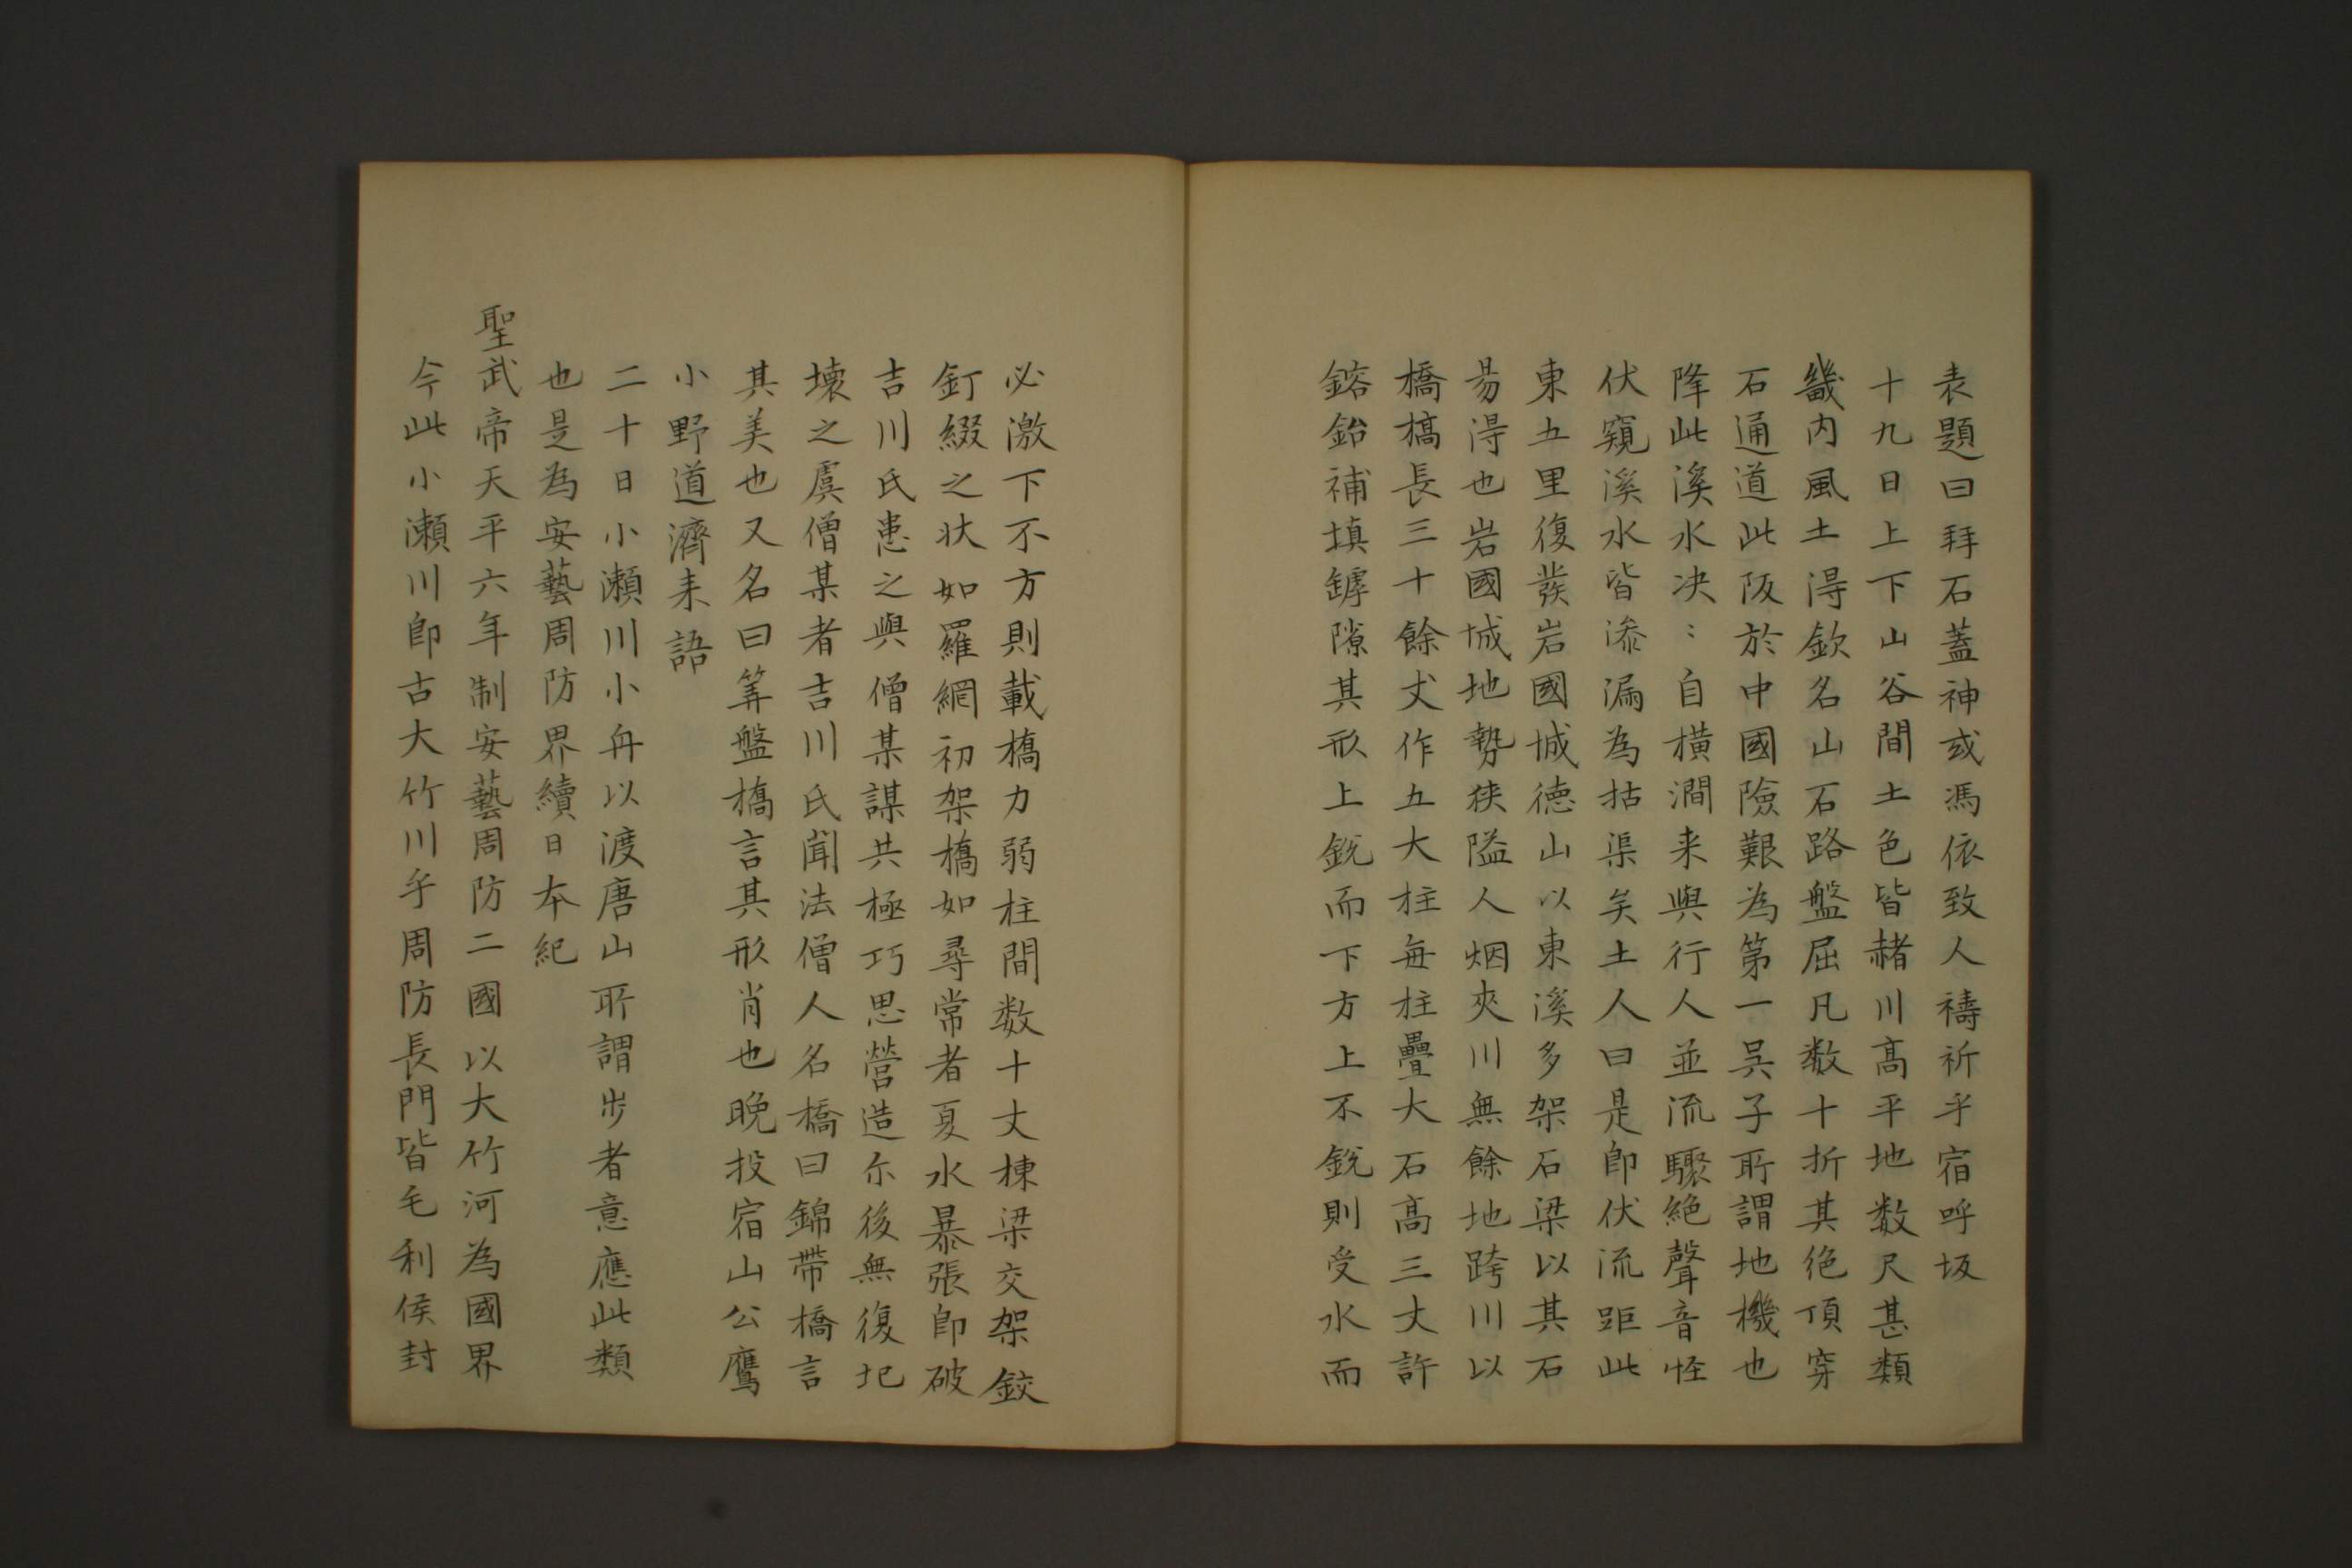 表題曰拜石蓋神或馮依致人禱祈乎宿呼坂
十九日上下山谷間土色皆赭川高平地数尺甚類
畿内風土得欽名山石路盤屈凡数十折其絶頂穿
石通道此阪於中國險艱為第一呉子所謂地機也
降此溪水决〻自橫澗来與行人並流驟絶聲音怪
伏窺溪水皆滲漏為枯渠矣土人曰是即伏流距此
東五里復發岩國城德山以東溪多架石梁以其石
易得也岩國城地勢狹隘人烟夾川無餘地跨川以
橋橋長三十餘丈作五大柱每柱疊大石高三丈許
鎔鉛補填罅隙其形上銳而下方上不銳則受水而
必激下不方則載橋力弱柱間数十丈棟梁交架鉸
釘綴之狀如羅網初架橋如尋常者夏水暴張即破
吉川氏患之與僧某謀共極巧思營造尓後無復圮
壞之虞僧某者吉川氏聞法僧人名橋曰錦帶橋言
其美也又名曰筭盤橋言其形肖也晚投宿山公鷹
小野道濟来語
二十日小瀨川小舟以渡唐山所謂步者意應此類
也是為安藝周防界續日本紀
聖武帝天平六年制安藝周防二國以大竹河為國界
今此小瀨川即古大竹川乎周防長門皆毛利侯封